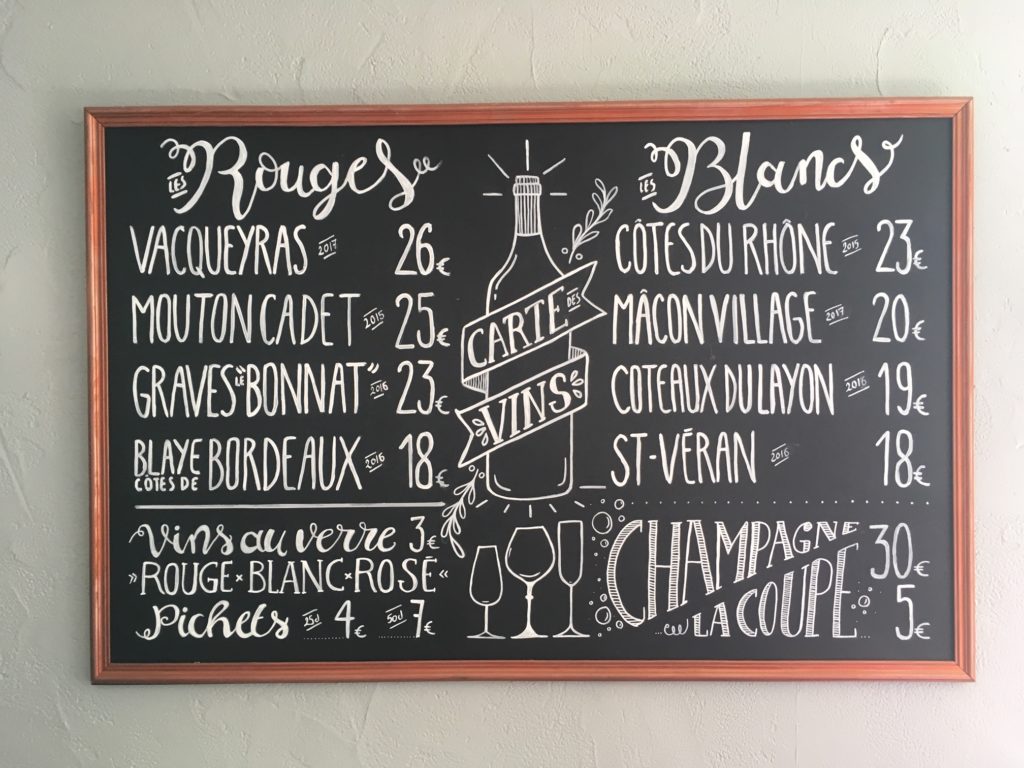 Les Rouges
VACQUEYRAS 2017 26€
MOUTON CADET 2015 25€
GRAVES "LE BONNAT" 2016 23€
BLAYE CÔTES DE BORDEAUX 2016 18€
Vins au verre 3€
» ROUGE × BLANC × ROSÉ «
Pichets 25cl 4€ 50cl 7€
CARTE DES
VINS
Les Blancs
CÔTES DU RHÔNE 2015 23€
MÂCON VILLAGE 2017 20€
COTEAUX DU LAYON 2016 19€
ST-VÉRAN 2016 18€
CHAMPAGNE 30€
LA COUPE 5€